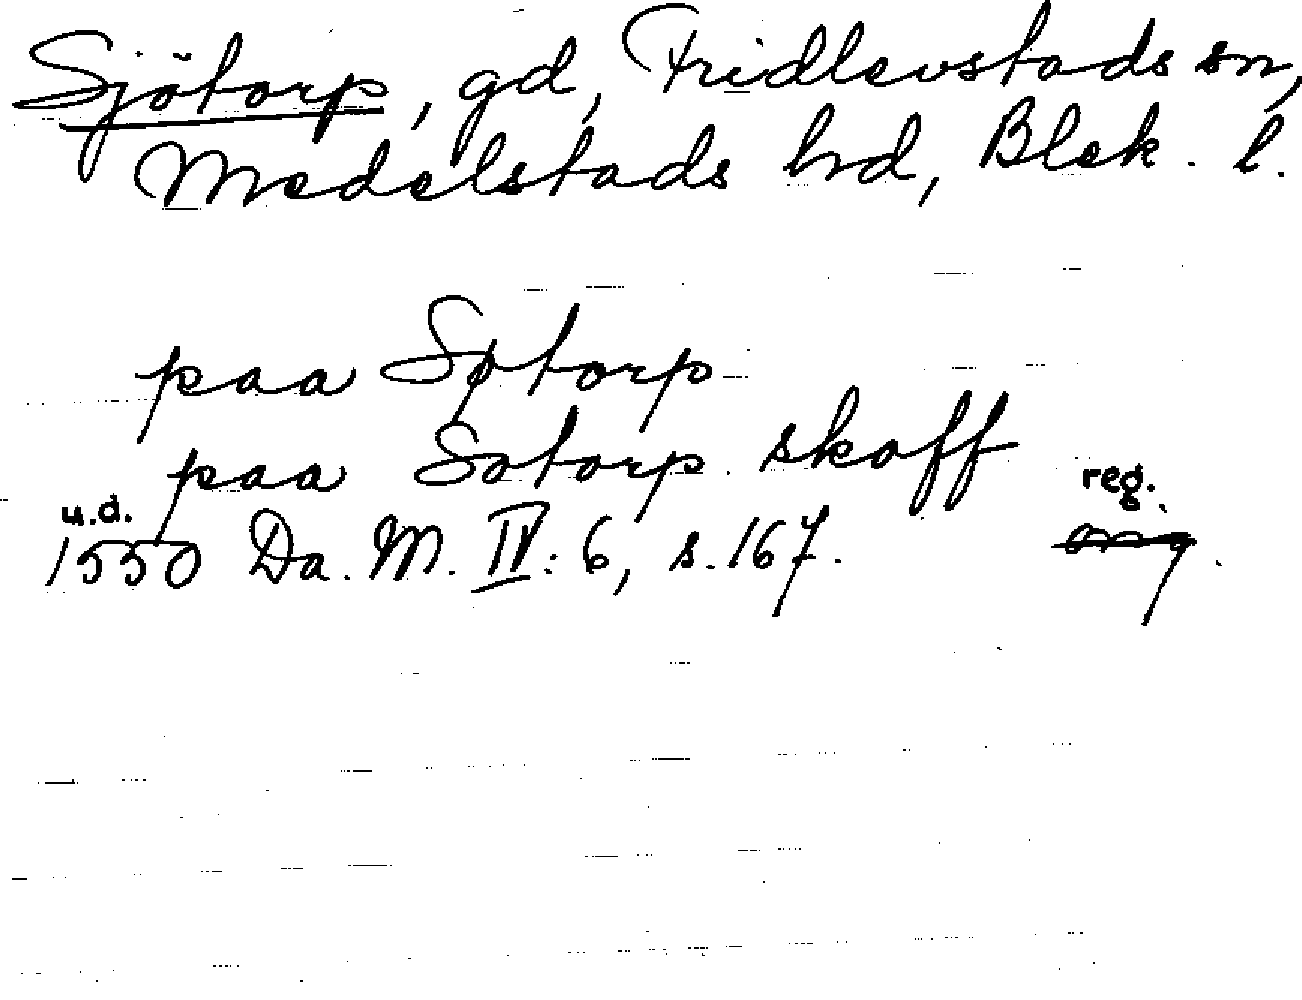 Sjötorp, gd, Fridlevstads sn,
Medelstads hd, Blek. l.
paa Søtorp
paa Sotorp skoff
u.d. reg.
1550 Da. M. IV: 6, s. 167.